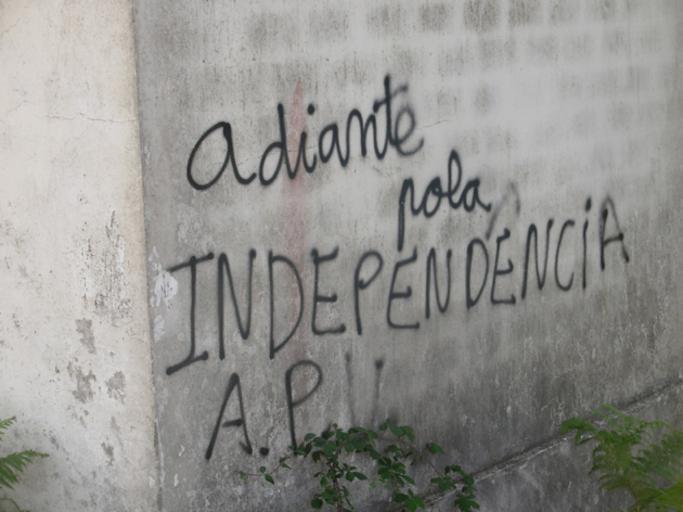 adiante
pola
INDEPENDENCiA
A.P.